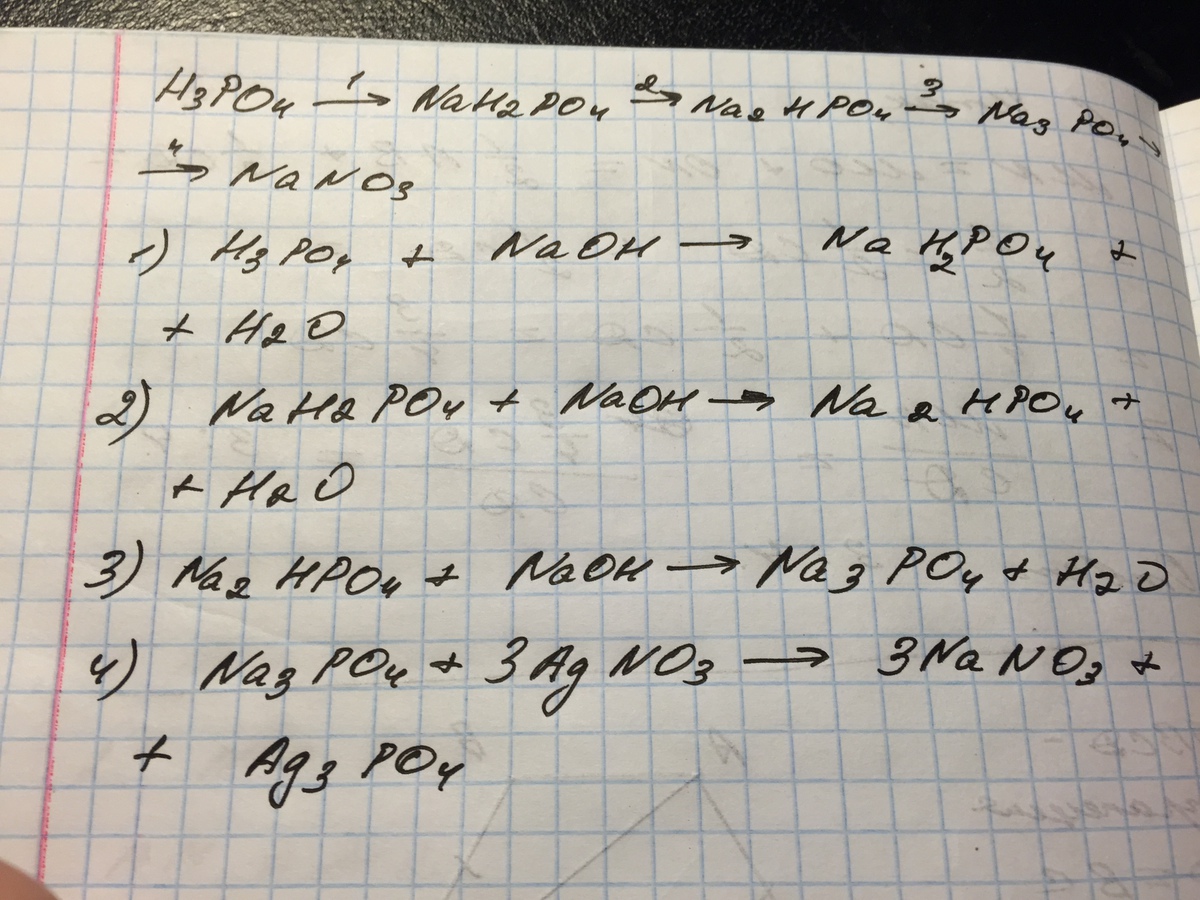 H3PO4 1→ NaH2PO4 2→ Na2HPO4 3→ Na3PO4 →
4→ NaNO3
1) H3PO4 + NaOH → NaH2PO4 +
+ H2O
2) NaH2PO4 + NaOH → Na2HPO4 +
+ H2O
3) Na2HPO4 + NaOH → Na3PO4 + H2O
4) Na3PO4 + 3AgNO3 → 3NaNO3 +
+ Ag3PO4